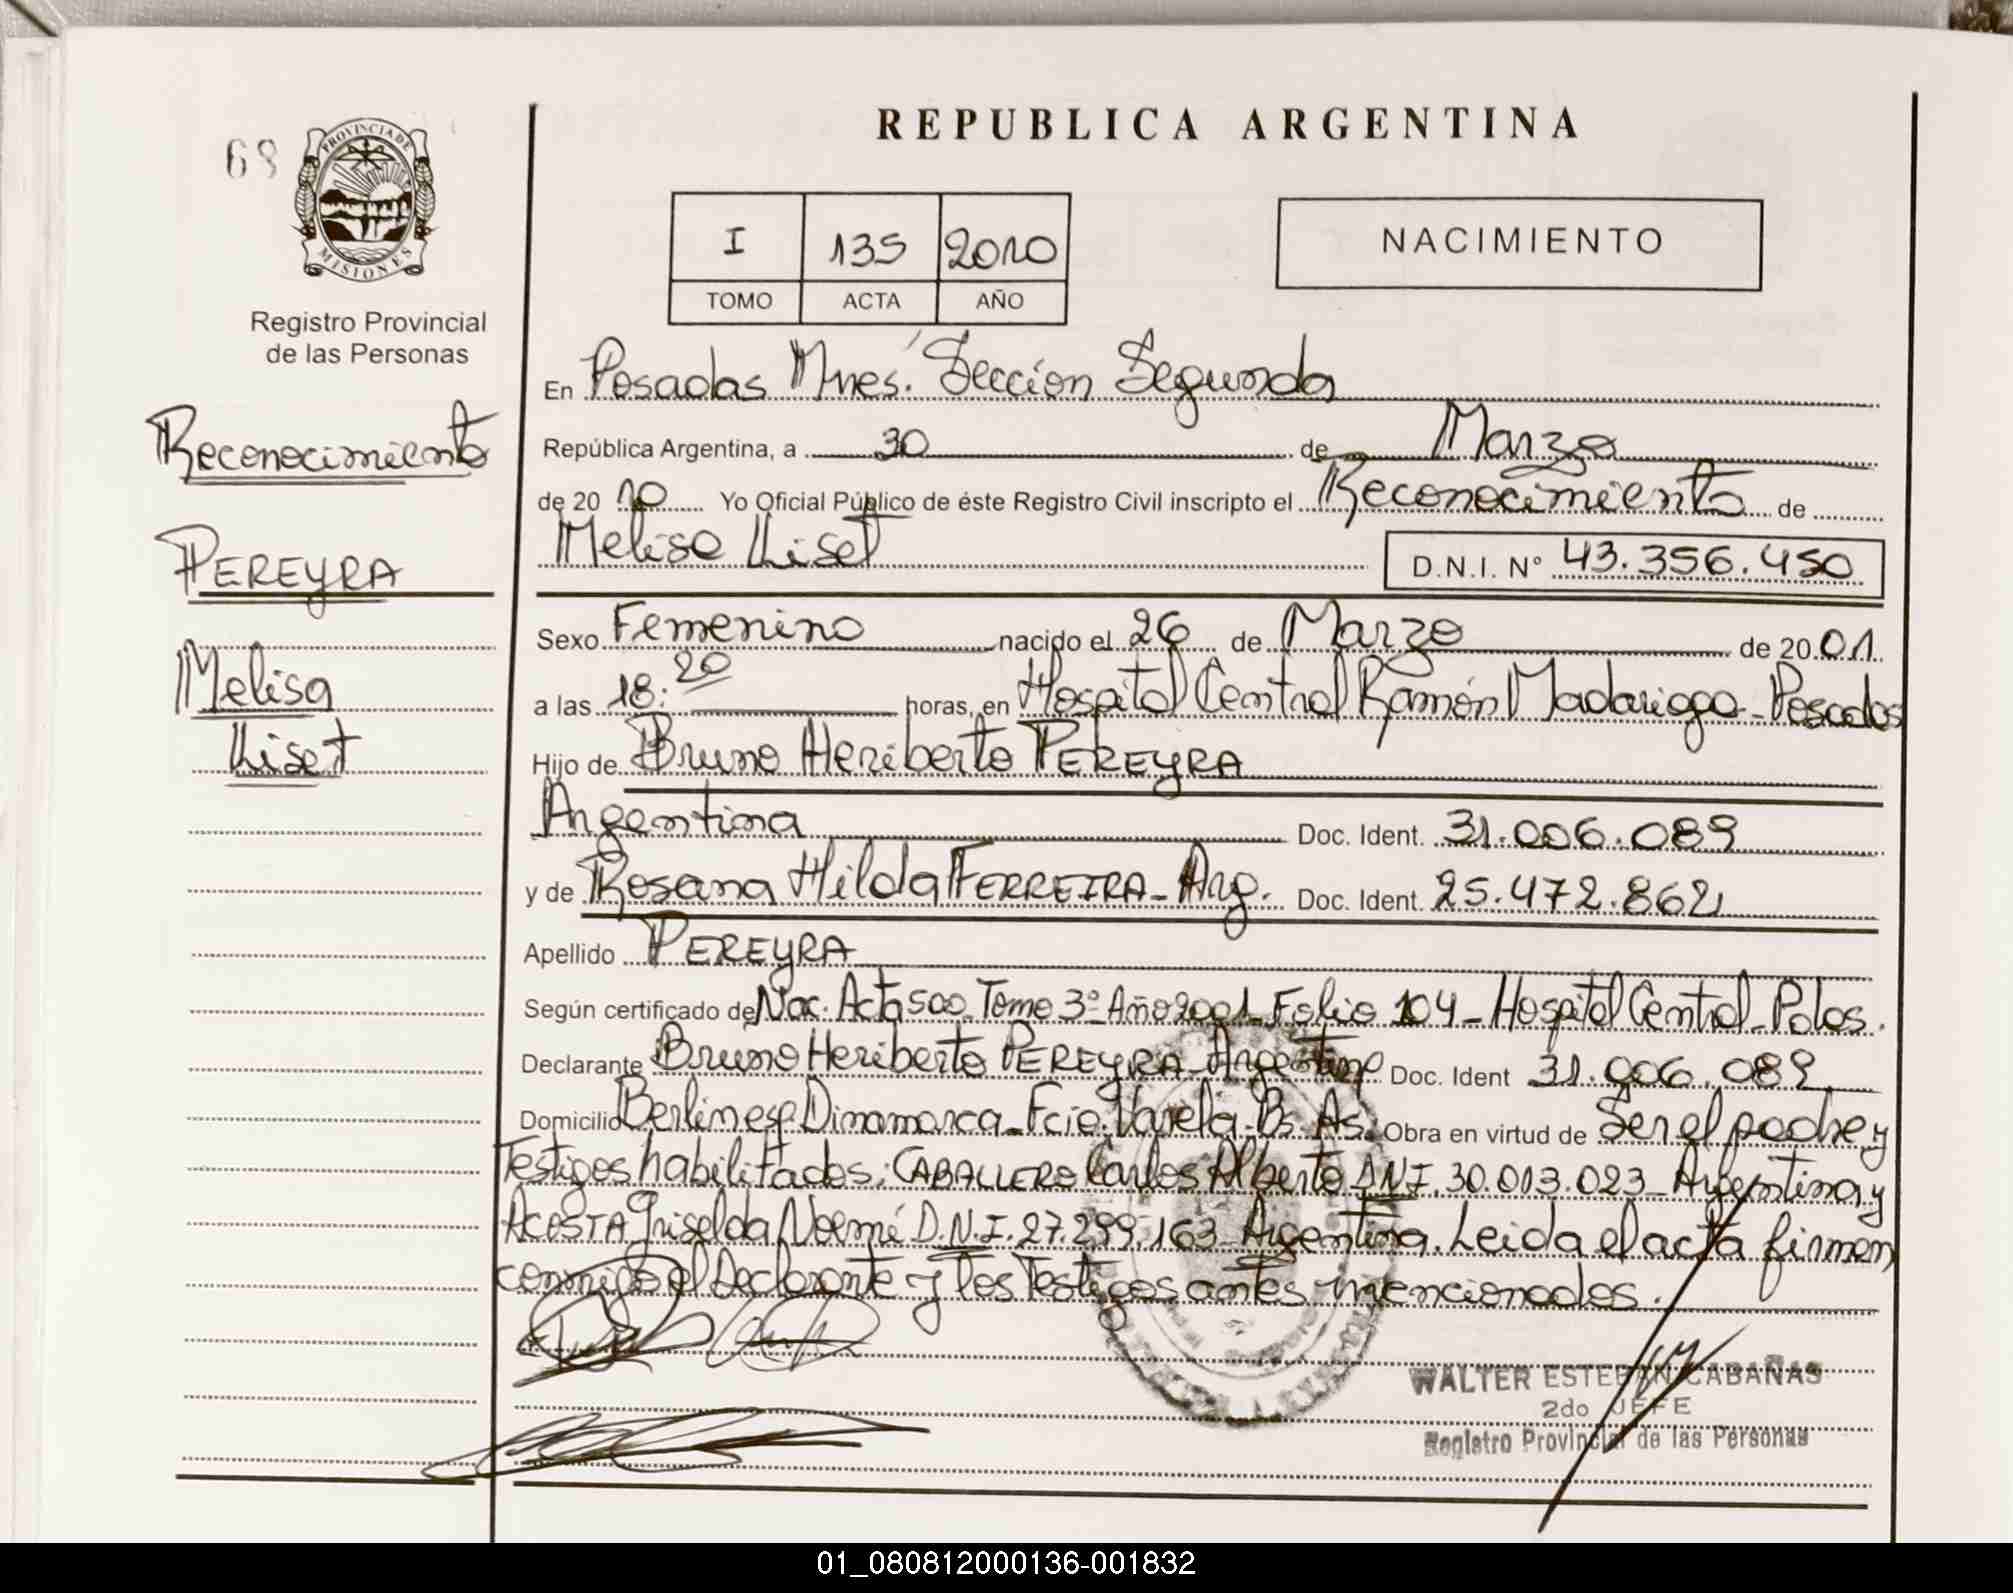 REPUBLICA ARGENTINA
68
PROVINCIA DE
MISIONES
Registro Provincial
de las Personas
Reconocimiento
PEREYRA
Melisa
Liset
I 135 2010
TOMO ACTA AÑO
NACIMIENTO
En Posadas Mnes. Sección Segunda
República Argentina, a 30 de Marzo
de 20 10 Yo Oficial Público de éste Registro Civil inscripto el Reconocimiento de
Melisa Liset D.N.I. Nº 43.356.450
Sexo Femenino nacido el 26 de Marzo de 20 01
a las 18:20 horas, en Hospital Central Ramón Madariaga - Posadas
Hijo de Bruno Heriberto PEREYRA
Argentina Doc. Ident. 31.006.089
y de Rosana Hilda FERREIRA - Arg. Doc. Ident. 25.472.862
Apellido PEREYRA
Según certificado de Nac. Acta 500 Tomo 3º Año 2001 - Folio 104 - Hospital Central - Pdas.
Declarante Bruno Heriberto PEREYRA - Argentino Doc. Ident 31.006.089
Domicilio Berlin esq. Dinamarca - Fcio. Varela - Bs. As. Obra en virtud de Ser el padre y
Testigos habilitados: CABALLERO Carlos Alberto D.N.I. 30.013.023 - Argentina y
ACOSTA Griselda Noemí D.N.I. 27.299.163 - Argentina. Leida el acta firman
conmigo el Declarante y los Testigos antes mencionados.
WALTER ESTEBAN CABAÑAS
2do JEFE
Registro Provincial de las Personas
01_080812000136-001832